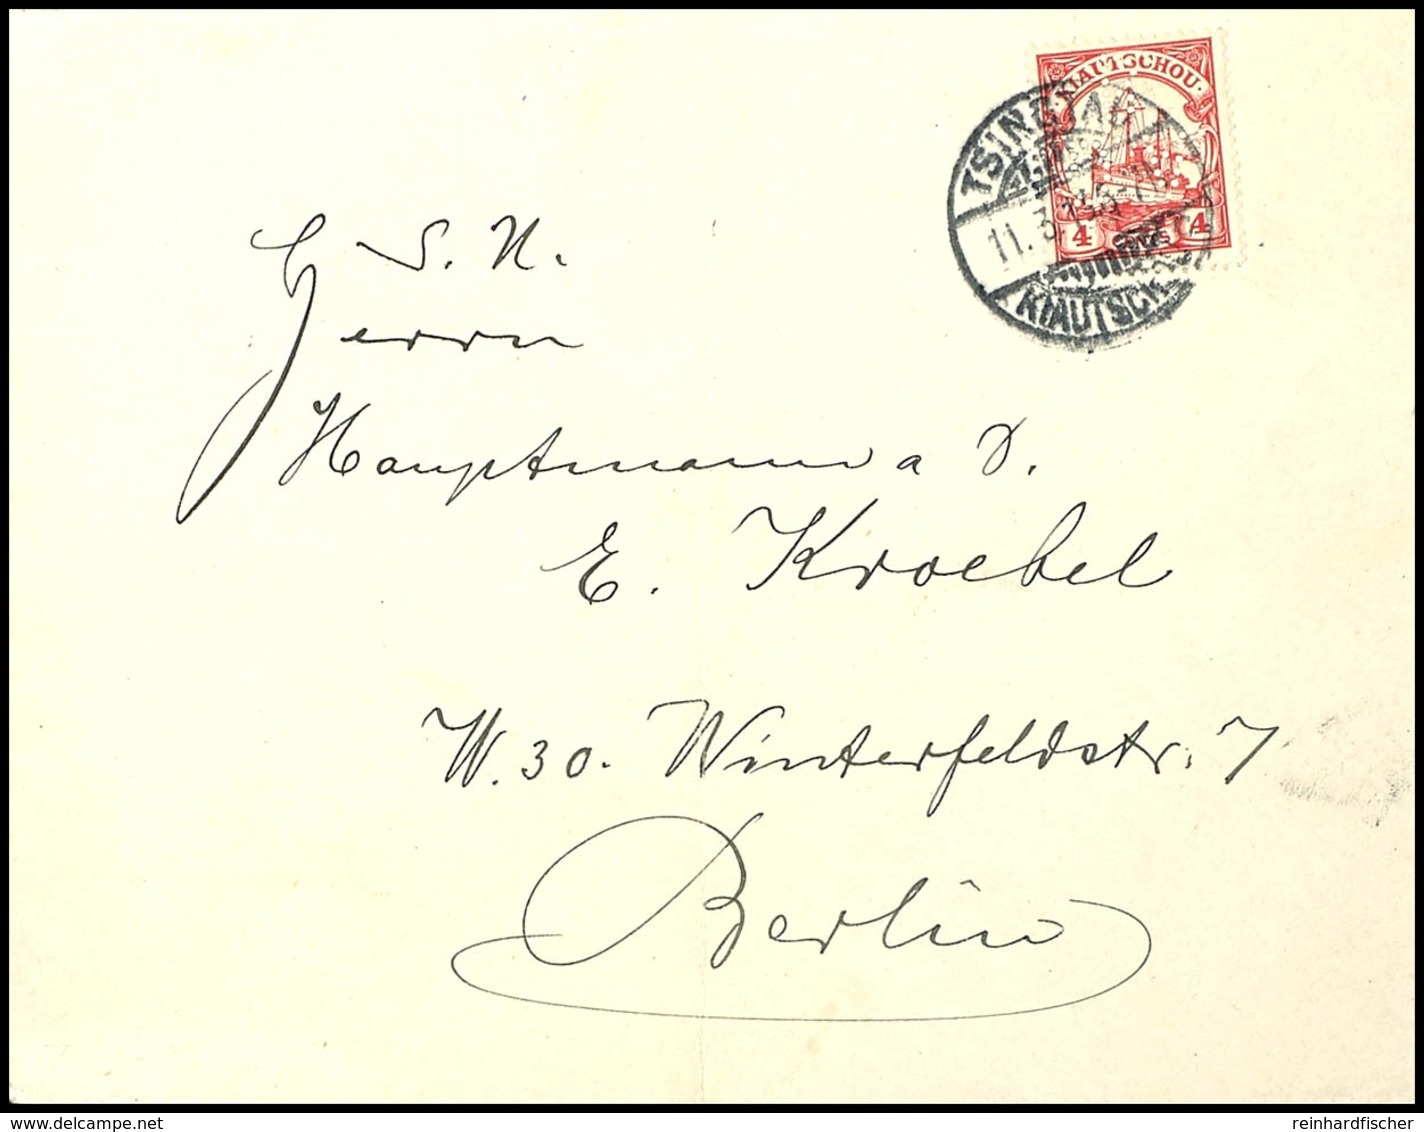 KIAUTSCHOU
4 4
TSINGTAU
11. 3.
KIAUTSCH
S. N.
Herrn
Hauptmann a D.
E. Kroebel
W. 30. Winterfeldstr. 7
Berlin
delcampe.net
reinhardfischer